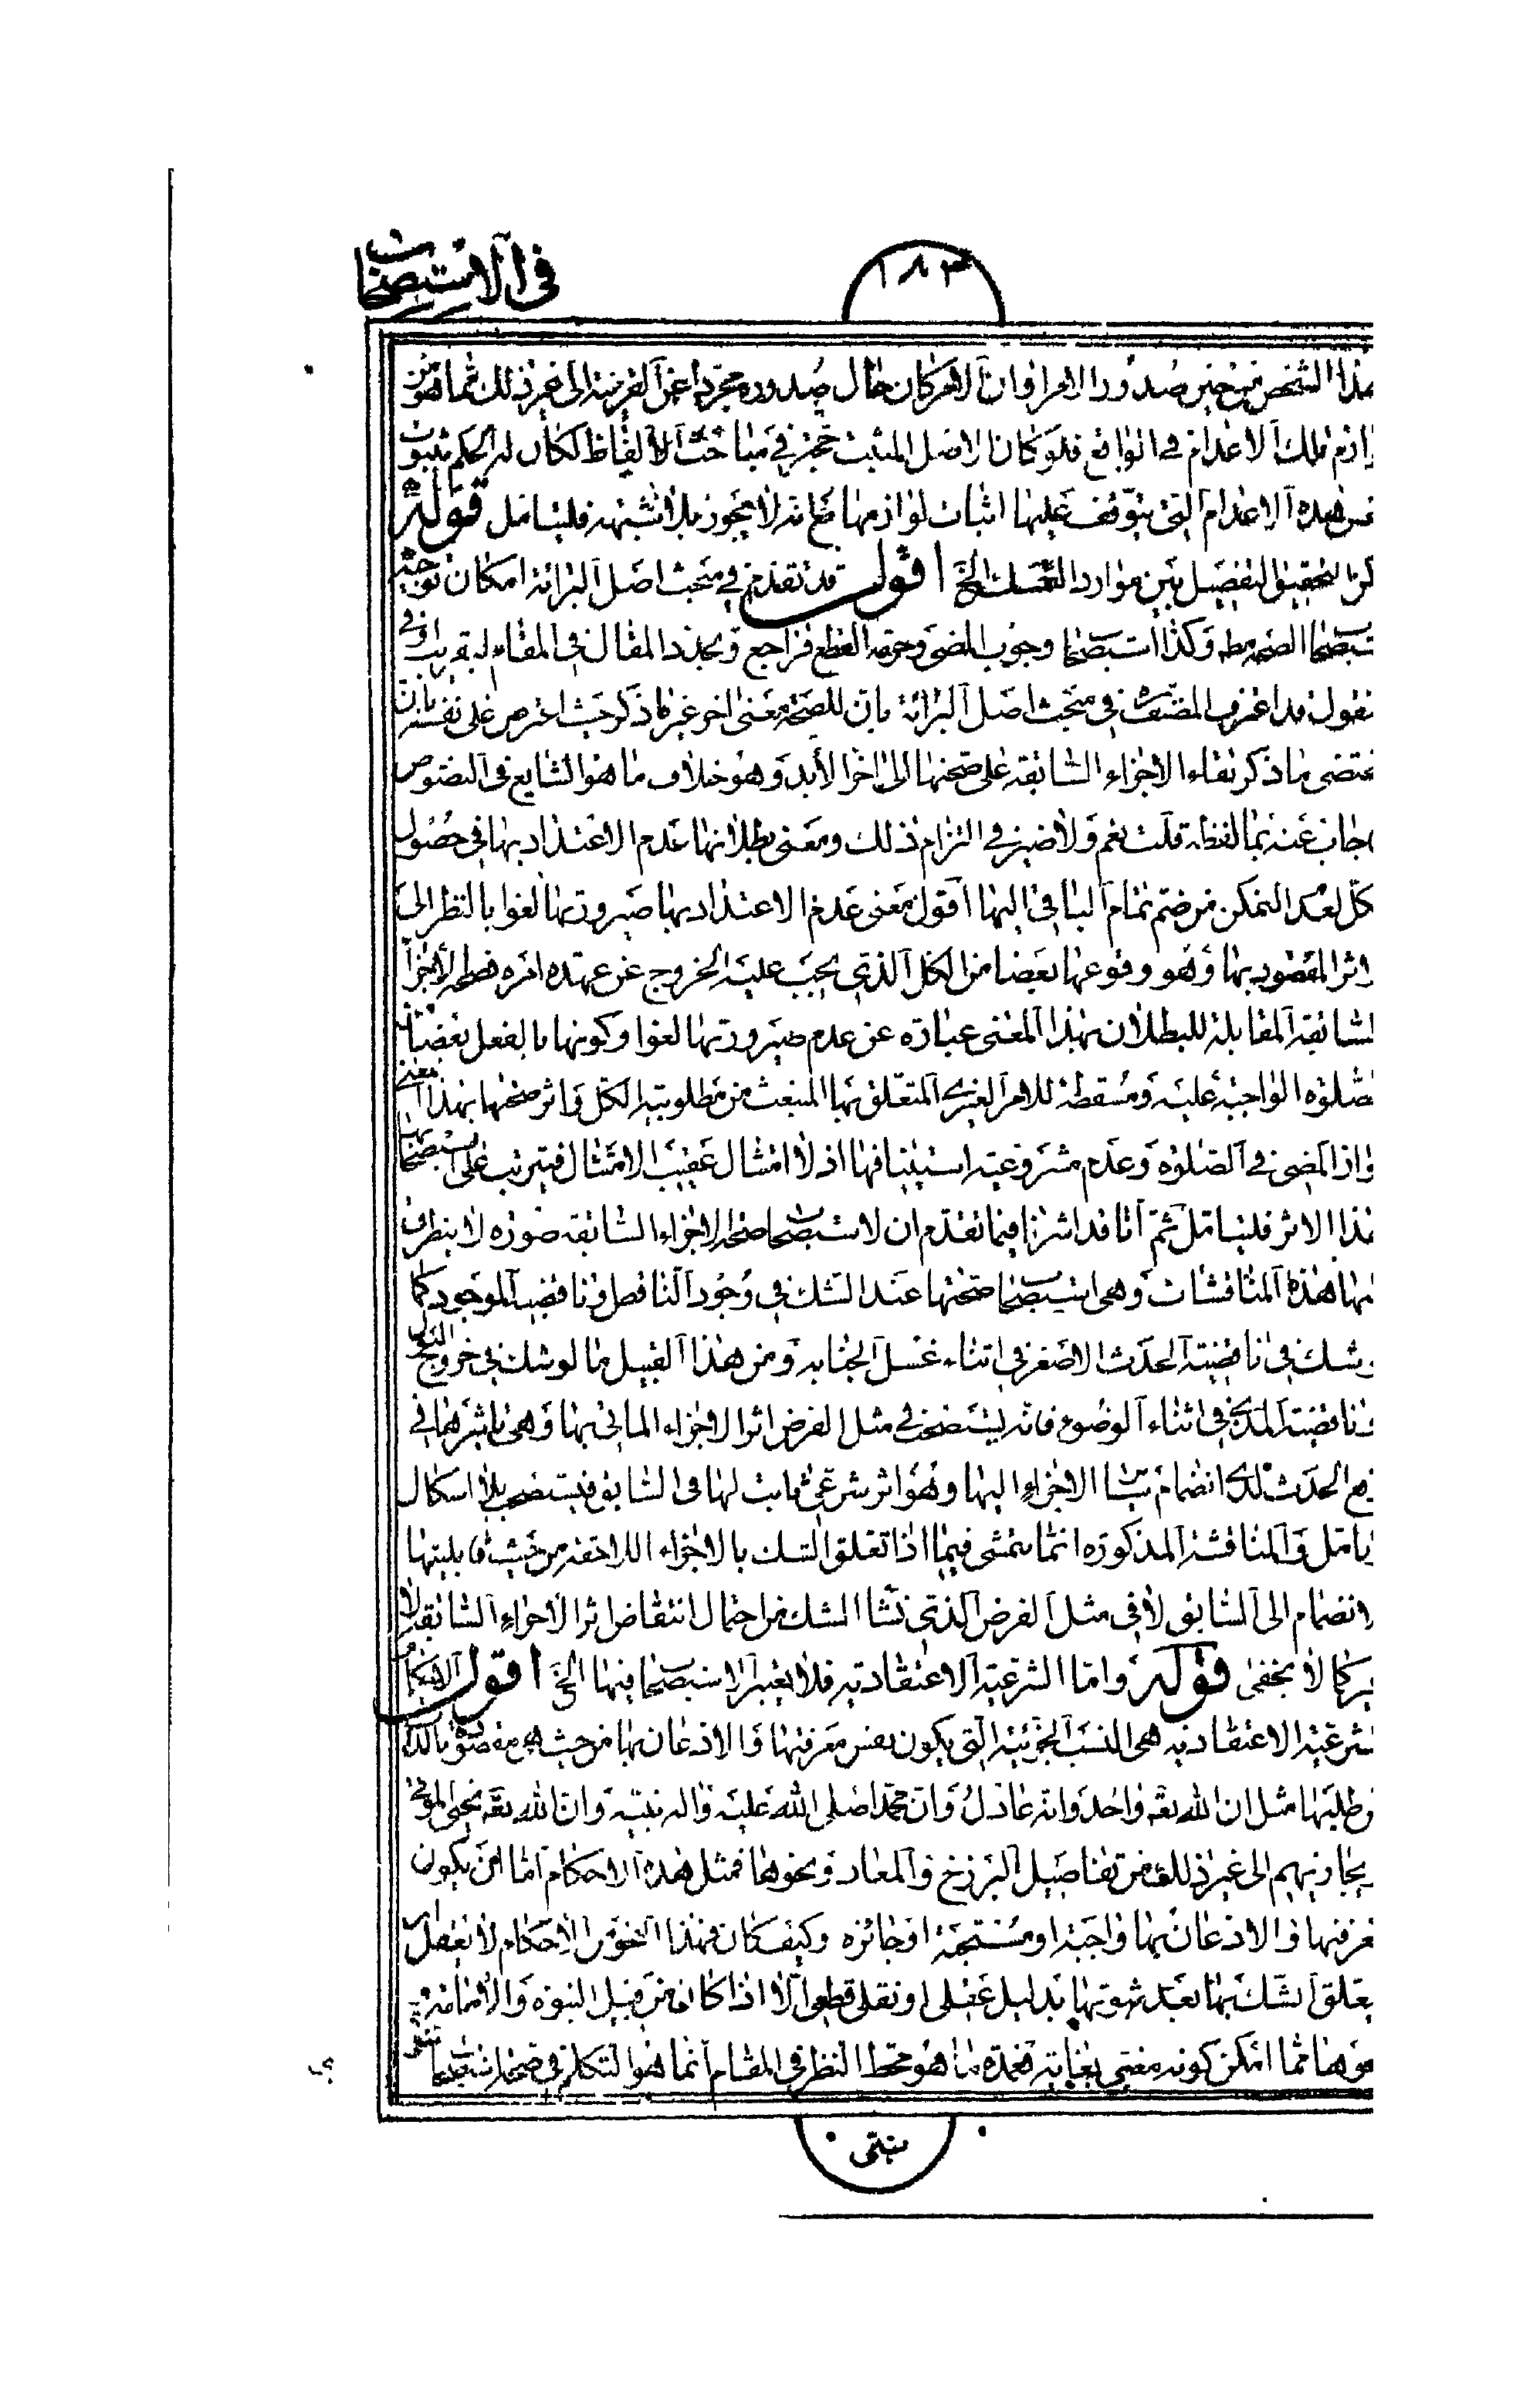 ١٨٣
في الاستصحاب
هذا الشخص من حين صدور الامر او ان الامر كان حال صدوره مجردا عن القرينة الى غير ذلك مما هو من
لوازم تلك الاعدام في الواقع فلو كان الاصل المثبت حجة في مباحث الالفاظ لكان له الحكم بثبوت
نفس هذه الاعدام التي يتوقف عليها اثبات لوازمها مع انه لا يجوز بلا شبهة فليتامل قوله
لكن التحقيق التفصيل بين موارد التمسك الخ اقول قد تقدم في مبحث اصل البرائة امكان توجيه
استصحاب الصحة مطه وكذا استصحاب وجوب المضي وحرمة القطع فراجع
نقول قد اعترف المصنف ره في مبحث اصل البرائة بان للصحة معنى اخر غير ما ذكر حيث اعترض على نفسه بان
مقتضى ما ذكر بقاء الاجزاء السابقة على صحتها الى اخر الأبد وهو خلاف ما هو الشايع في النصوص
اجاب عنه بما لفظه قلت نعم ولا ضير في التزام ذلك ومعنى بطلانها عدم الاعتداد بها في حصول
الكل لعدم التمكن من ضم تمام الباقي اليها اقول معنى عدم الاعتداد بها صيرورتها لغوا بالنظر الى
الاثر المقصود بها وهو وقوعها بعضا من الكل الذي يجب عليه الخروج عن عهدة امره فصحة الأجزاء
السابقة المقابلة للبطلان بهذا المعنى عبارة عن عدم صيرورتها لغوا وكونها بالفعل بعضا من
الصلوة الواجبة عليه ومسقطة للامر الغيرى المتعلق بها المنبعث من مطلوبية الكل واثر صحتها بهذا المعنى
جواز المضي في الصلوة وعدم مشروعية استينافها اذ لا امتثال عقيب الامتثال فيترتب على استصحابها
هذا الاثر فليتامل ثم انا قد اشرنا فيما تقدم ان لاستصحاب صحة الاجزاء السابقة صورة لا يتطرق
اليها هذه المناقشات وهي استصحاب صحتها عند الشك في وجود الناقض او ناقضية الموجود كما
لو شك في ناقضية الحدث الاصغر في اثناء غسل الجنابة ومن هذا القبيل ما لو شك في خروج البول
او ناقضية المذى في اثناء الوضوء فانه يستصحب في مثل الفرض اثر الاجزاء الماتى بها وهي تاثيرها في
رفع الحدث لدى انضمام سائر الاجزاء اليها وهو اثر شرعي ثابت لها في السابق فيستصحب بلا اشكال
تامل والمناقشة المذكورة انما تتمشى فيما اذا تعلق الشك بالاجزاء اللاحقة من حيث قابليتها
للانضمام الى السابق لا في مثل الفرض الذي نشا الشك من احتمال انتقاض اثر الأجزاء السابقة لا
غير كما لا يخفى قوله واما الشرعية الاعتقادية فلا يعتبر الاستصحاب فيها الخ اقول الاحكام
الشرعية الاعتقادية هي النسب الجزئية التي يكون نفس معرفتها والاذعان بها من حيث هي مقصودة بالذات
وطلبها مثل ان الله تعه واحد وانه عادل وان محمدا صلى الله عليه واله نبيه وان الله تعه يحيى الموتى
يجازيهم الى غير ذلك من تفاصيل البرزخ والمعاد ونحوها فمثل هذه الاحكام اما ان يكون
معرفتها والاذعان بها واجبة او مستحبة او جائزه وكيف كان فهذا النحو من الاحكام لا يعقل ان
يتعلق الشك بها بعد ثبوتها بدليل عقلي او نقلي قطعي الا اذا كان من قبيل النبوة والامامة
ونحوها مما امكن كونه مغيى بغاية فعمدة ما هو محط النظر في المقام انما هو التكلم في صحة استصحاب
بنتى